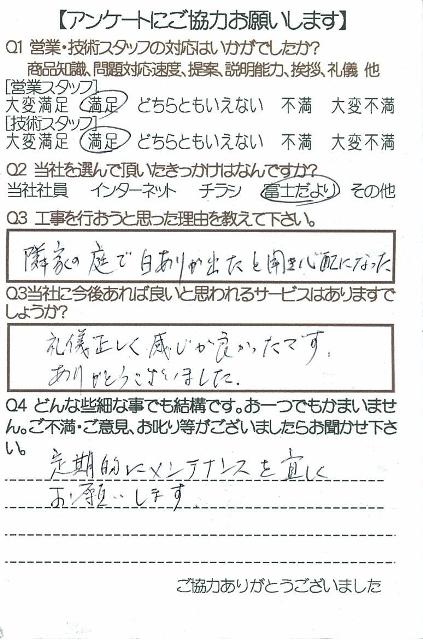 【アンケートにご協力お願いします】
Q1 営業・技術スタッフの対応はいかがでしたか?
商品知識、問題対応速度、提案、説明能力、挨拶、礼儀 他
[営業スタッフ]
大変満足 満足 どちらともいえない 不満 大変不満
[技術スタッフ]
大変満足 満足 どちらともいえない 不満 大変不満
Q2 当社を選んで頂いたきっかけはなんですか?
当社社員 インターネット チラシ 富士だより その他
Q3 工事を行おうと思った理由を教えて下さい。
隣家の庭で白ありが出たと聞き心配になった
Q3当社に今後あれば良いと思われるサービスはありますで
しょうか?
礼儀正しく感じが良かったです。
ありがとうございました。
Q4 どんな些細な事でも結構です。お一つでもかまいませ
ん。ご不満・ご意見、お叱り等がございましたらお聞かせ下さ
い。
定期的にメンテナンスを宜しく
お願いします。
ご協力ありがとうございました